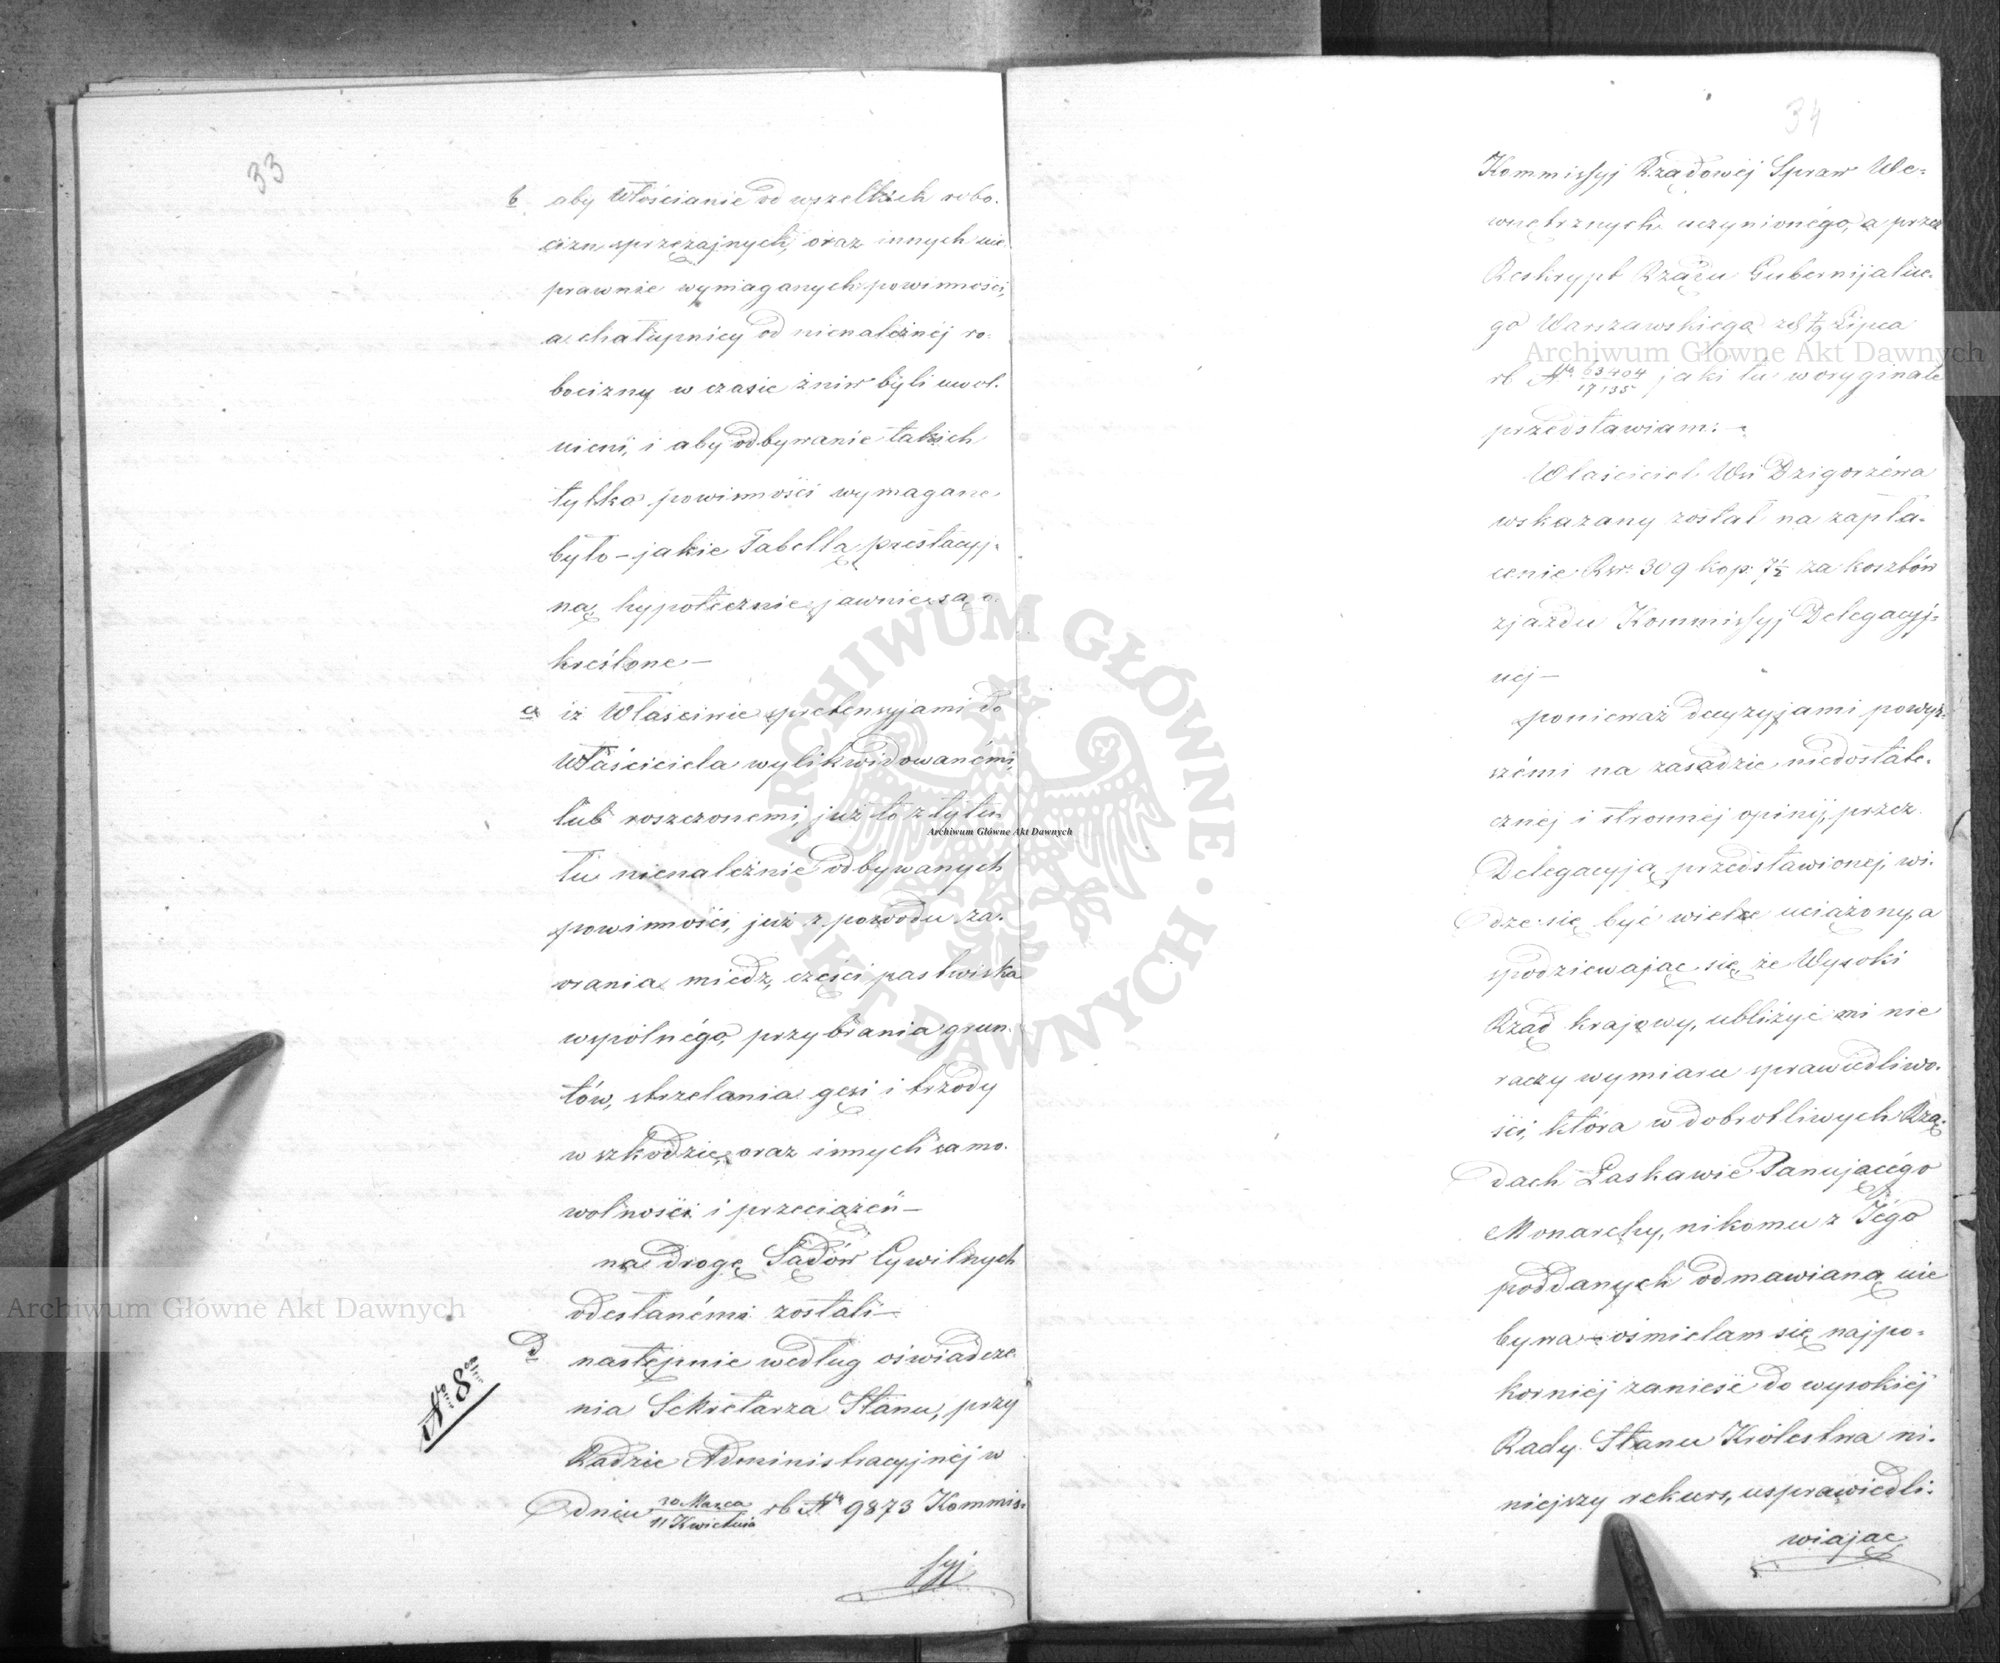 33
b. aby Włościanie od wszelkich robo-
cizn sprzężajnych, oraz innych nie-
prawnie wymaganych powinności,
a chałupnicy od nienależnéj ro-
bocizny w czasie żniw byli uwol-
nieni, i aby odbywanie takich
tylko powinności wymagane
było – jakie Tabellą prestacyj-
ną, hypotecznie jawnie są o-
kreślone –
c. iż Właścinie z pretensyjami do
Właściciela wylikwidowanémi,
lub roszczonemi, już to z tytu-
łu nienależnie odbywanych
powinności, już z powodu za-
orania miedz, części pastwiska
wspólnégo, przybrania grun-
tów, strzelania gęsi i trzody
w szkodzie, oraz innych samo-
wolności i przeciążeń –
na drogę Sądów Cywilnych
odesłanémi zostali –
d. następnie według oświadcze-
Nro 8
nia Sekretarza Stanu, przy
Radzie Administracyjnéj w
dniu 30 Marca / 11 Kwietnia rb Nr 9873 Kommis-
syj
34
Kommissyj Rządowéj Spraw We-
wnętrznych uczynionégo, a przez
Reskrypt Rządu Gubernijalne-
go Warszawskiego z d 7/19 Lipca
rb Nr 63404/17135 jaki tu w oryginale
przedstawiam: –
Właściciel Wsi Dzigorzewa
wskazany został na zapła-
cenie Rsr. 309 kop. 7½ za kosztów
zjazdu Kommissyj Delegacyj-
nej –
ponieważ decyzyjami powyż-
szémi na zasadzie niedostate-
cznéj i stronnéj opinij, przez
Delegacyją przedstawionej, wi-
dzę się być wielce uciążony, a
spodziewając się, że Wysoki
Rząd krajowy, ubliżyć mi nie
raczy wymiaru sprawiedliwo-
ści, która w dobrotliwych Rzą-
dach Łaskawie Panującégo
Monarchy, nikomu z Jégo
poddanych odmawianą nie
bywa – ośmielam się najpo-
korniéj zanieść do wysokiéj
Rady Stanu Królestwa ni-
niejszy rekurs, usprawiedli-
wiając
Archiwum Główne Akt Dawnych
Archiwum Główne Akt Dawnych
Archiwum Główne Akt Dawnych
ARCHIWUM GŁÓWNE AKT DAWNYCH